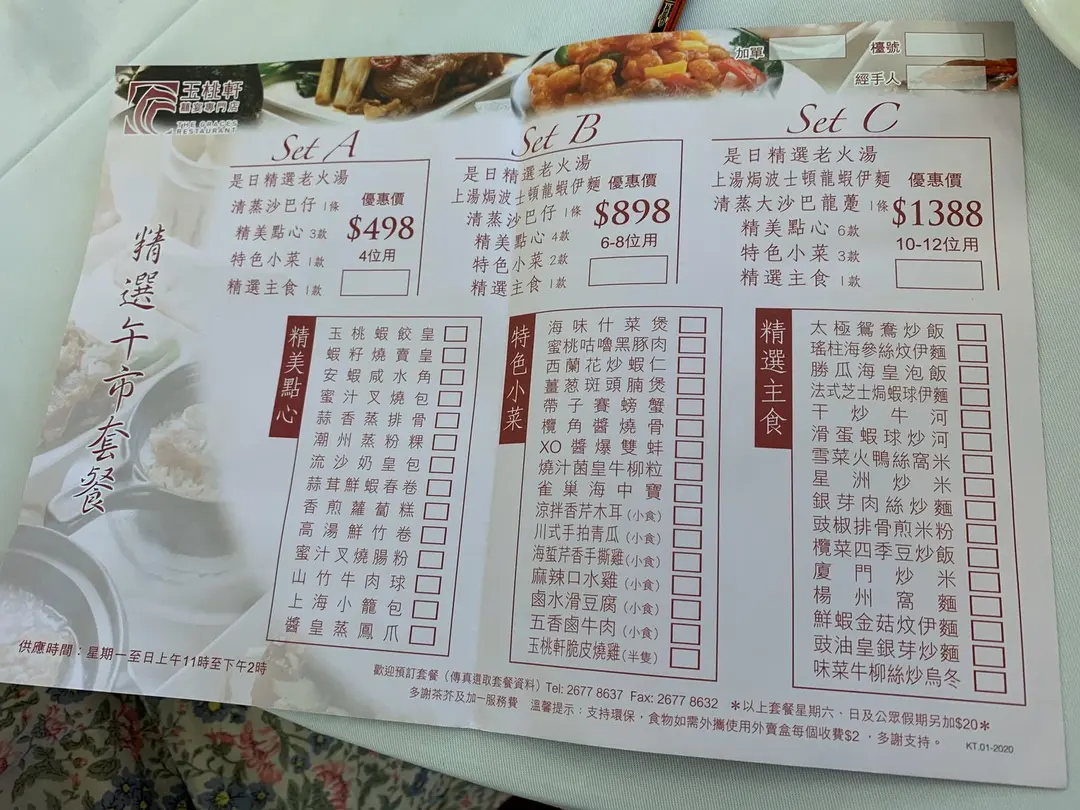 加單
檯號
經手人
玉桃軒
囍宴專門店
THE GRACES
RESTAURANT
精選午市套餐
Set A
是日精選老火湯
清蒸沙巴仔 1條
精美點心 3款
特色小菜 1款
精選主食 1款
優惠價
$498
4位用
Set B
是日精選老火湯
上湯焗波士頓龍蝦伊麵
清蒸沙巴仔 1條
精美點心 4款
特色小菜 2款
精選主食 1款
優惠價
$898
6-8位用
Set C
是日精選老火湯
上湯焗波士頓龍蝦伊麵
清蒸大沙巴龍躉 1條
精美點心 6款
特色小菜 3款
精選主食 1款
優惠價
$1388
10-12位用
精美點心
玉桃蝦餃皇
蝦籽燒賣皇
安蝦咸水角
蜜汁叉燒包
蒜香蒸排骨
潮州蒸粉粿
流沙奶皇包
蒜茸鮮蝦春卷
香煎蘿蔔糕
高湯鮮竹卷
蜜汁叉燒腸粉
山竹牛肉球
上海小籠包
醬皇蒸鳳爪
特色小菜
海味什菜煲
蜜桃咕嚕黑豚肉
西蘭花炒蝦仁
薑葱斑頭腩煲
帶子賽螃蟹
欖角醬燒骨
XO醬爆雙蚌
燒汁菌皇牛柳粒
雀巢海中寶
涼拌香芹木耳(小食)
川式手拍青瓜(小食)
海蜇芹香手撕雞(小食)
麻辣口水雞(小食)
鹵水滑豆腐(小食)
五香鹵牛肉(小食)
玉桃軒脆皮燒雞(半隻)
精選主食
太極鴛鴦炒飯
瑤柱海參絲炆伊麵
勝瓜海皇泡飯
法式芝士焗蝦球伊麵
干炒牛河
滑蛋蝦球炒河
雪菜火鴨絲窩米
星洲炒米
銀芽肉絲炒麵
豉椒排骨煎米粉
欖菜四季豆炒飯
廈門炒米
楊州窩麵
鮮蝦金菇炆伊麵
豉油皇銀芽炒麵
味菜牛柳絲炒烏冬
供應時間：星期一至日上午11時至下午2時
歡迎預訂套餐（傳真選取套餐資料）Tel: 2677 8637 Fax: 2677 8632 *以上套餐星期六、日及公眾假期另加$20*
多謝茶芥及加一服務費 溫馨提示：支持環保，食物如需外攜使用外賣盒每個收費$2，多謝支持。
KT.01-2020